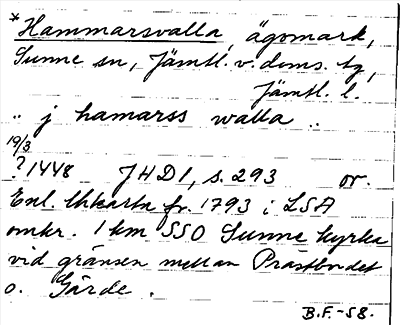 *Hammarsvalla, ägomark,
Sunne sn, Jämtl. v. doms. tg,
Jämtl. l.
.. j hamarss walla ..
19/3
?1448 JHD1, s. 293 or.
Enl. lhkarta fr. 1793 i LSA
omkr. 1 km SSO Sunne kyrka
vid gränsen mellan Prästbordet
o. Gärde.
B.F.-58.